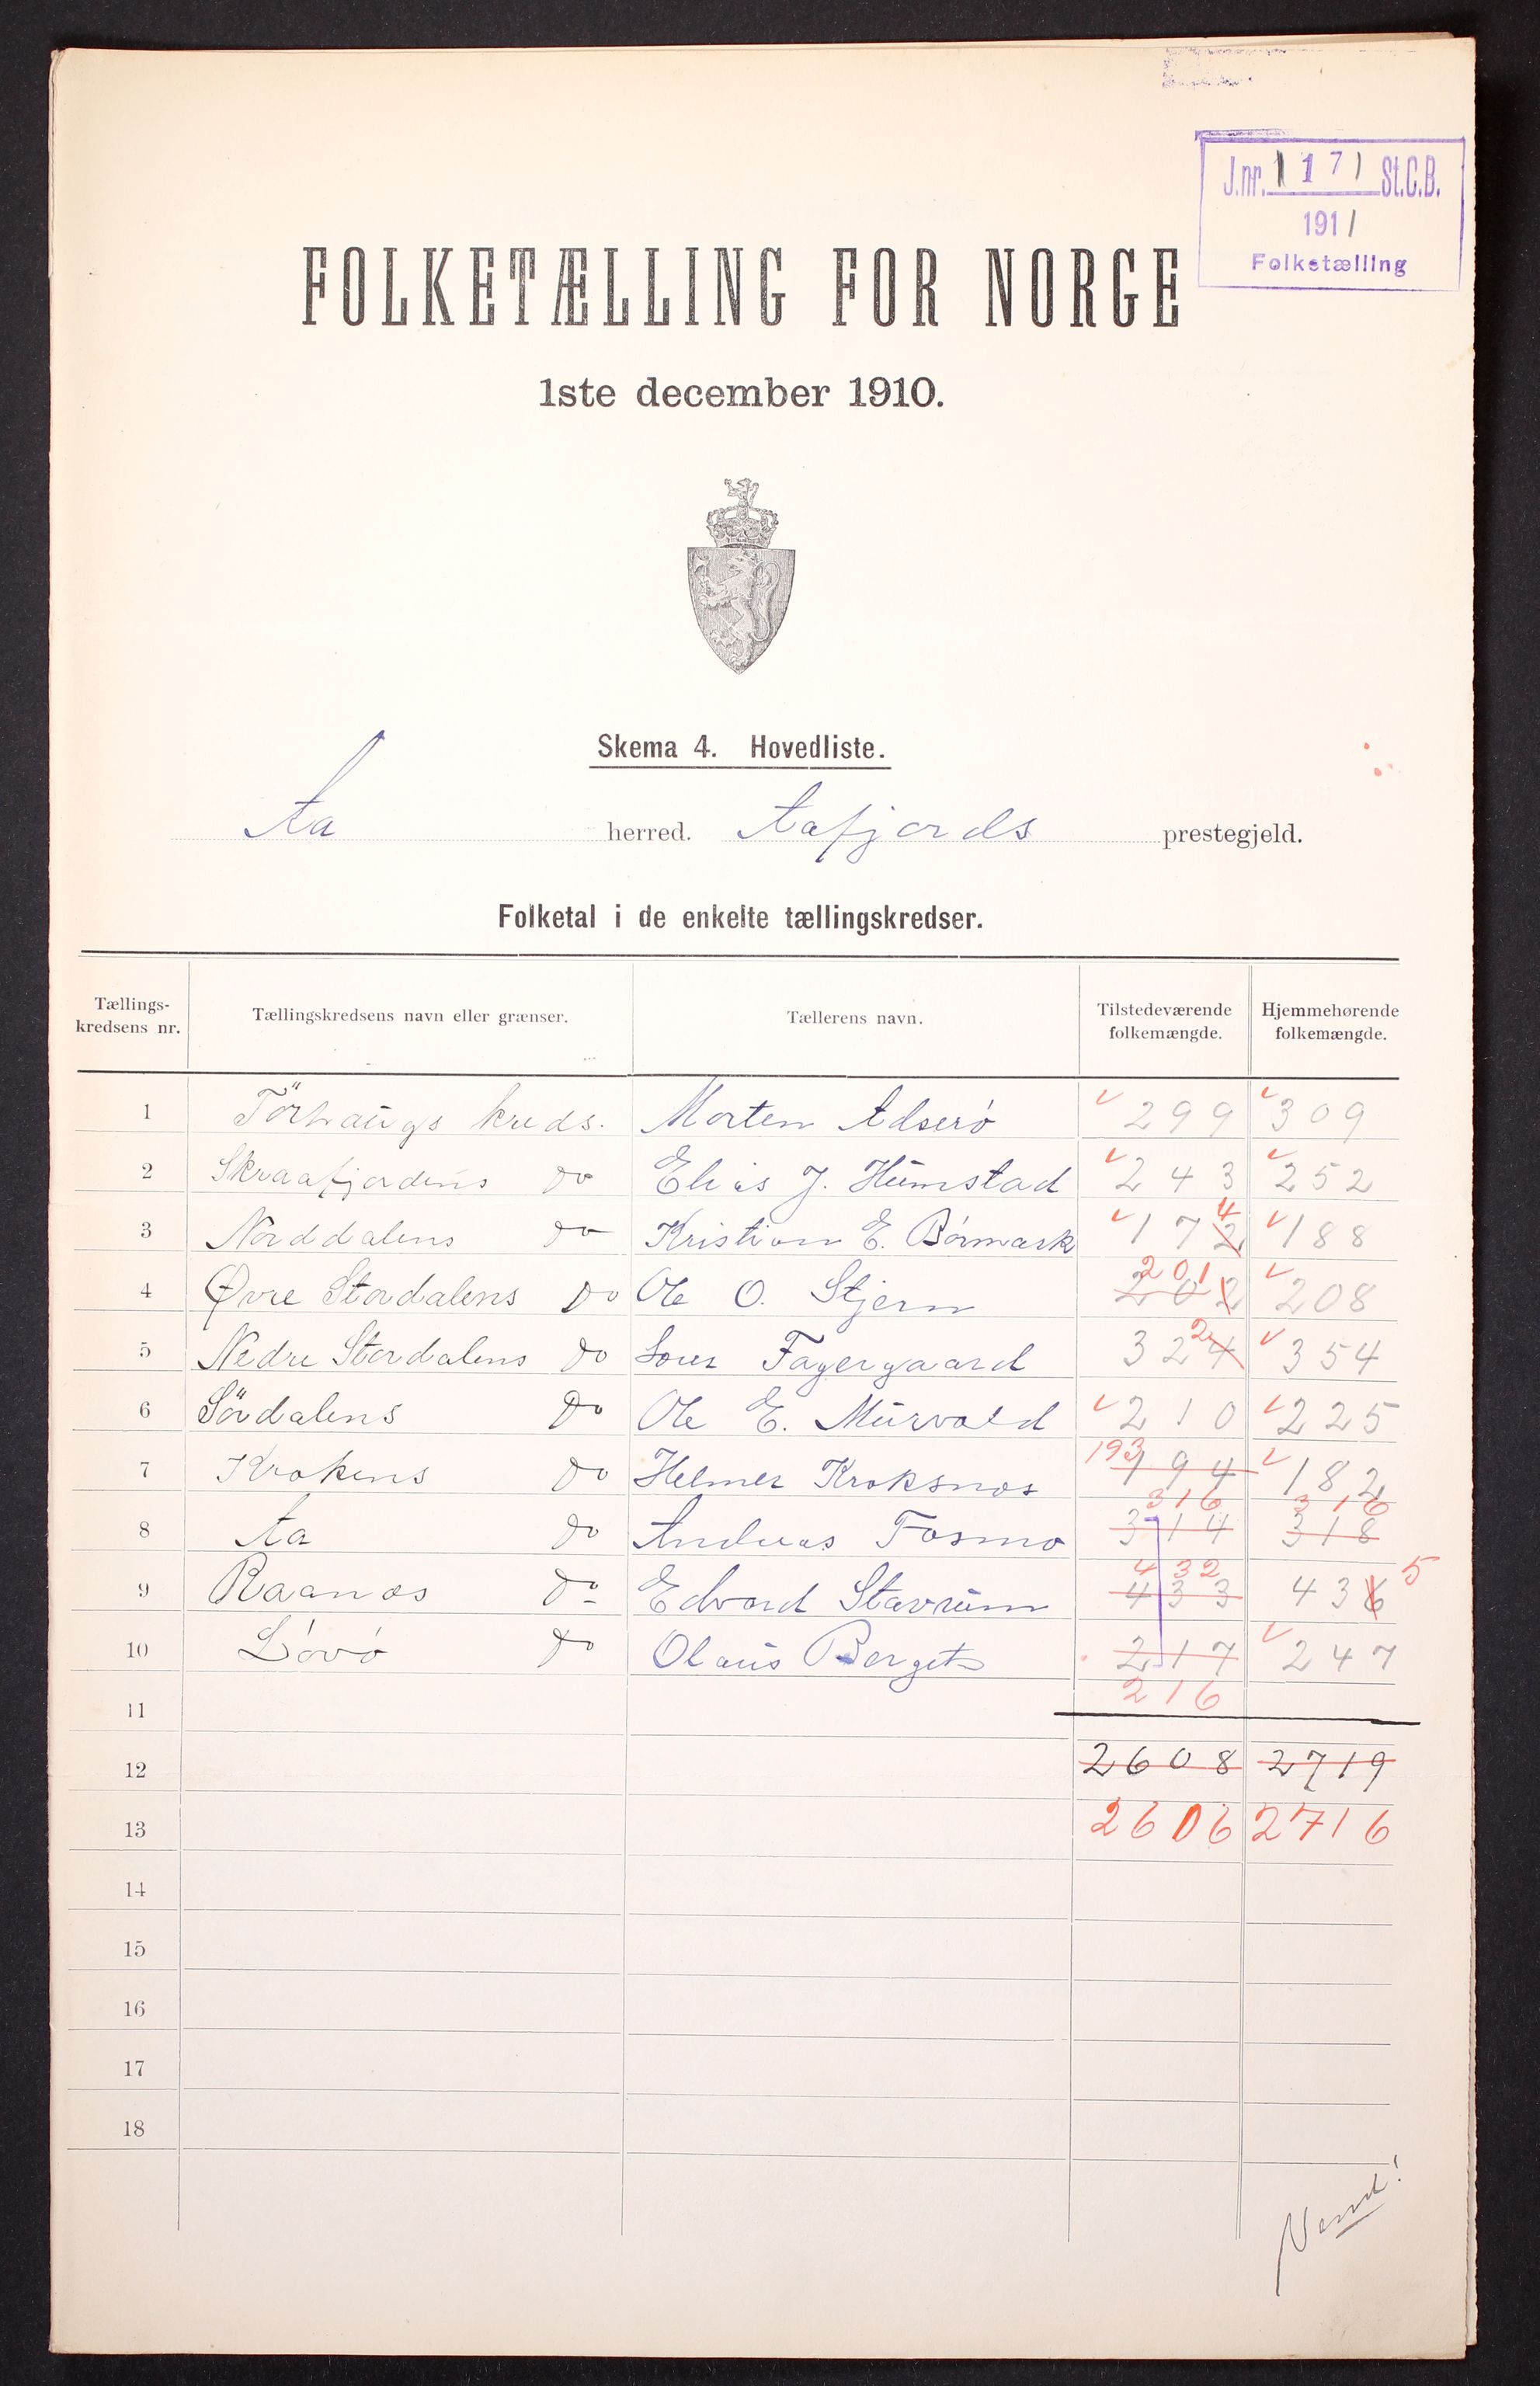 J.nr. 1171 St.C.B.
1911
Folketælling
FOLKETÆLLING FOR NORGE
1ste december 1910.
Skema 4. Hovedliste.
Aa herred. Aafjords prestegjeld.
Folketal i de enkelte tællingskredser.
Tællings-kredsens nr. Tællingskredsens navn eller grænser. Tællerens navn. Tilstedeværende folkemængde. Hjemmehørende folkemængde.
1 Törhaugs kreds. Morten Adserö 299 309
2 Skraafjordens do Elias J. Humstad 243 252
4
3 Norddalens do Kristian E. Börmark 172 188
201
4 Øvre Stordalens Do Ole O. Stjern 202 208
2
5 Nedre Stordalens Do Fagergaard 324 354
6 Sördalens Do Ole E. Murvold 210 225
193
7 Krokens Do Helmer Kroksnes 194 182
316 316
8 Aa Do Andreas Fosmo 314 318
432 5
9 Raanæs Do Edvard Stavrum 433 436
10 Lövö Do Olaus Berget 217 247
216
11
12 2608 2719
13 2606 2716
14
15
16
17
18
Vend!